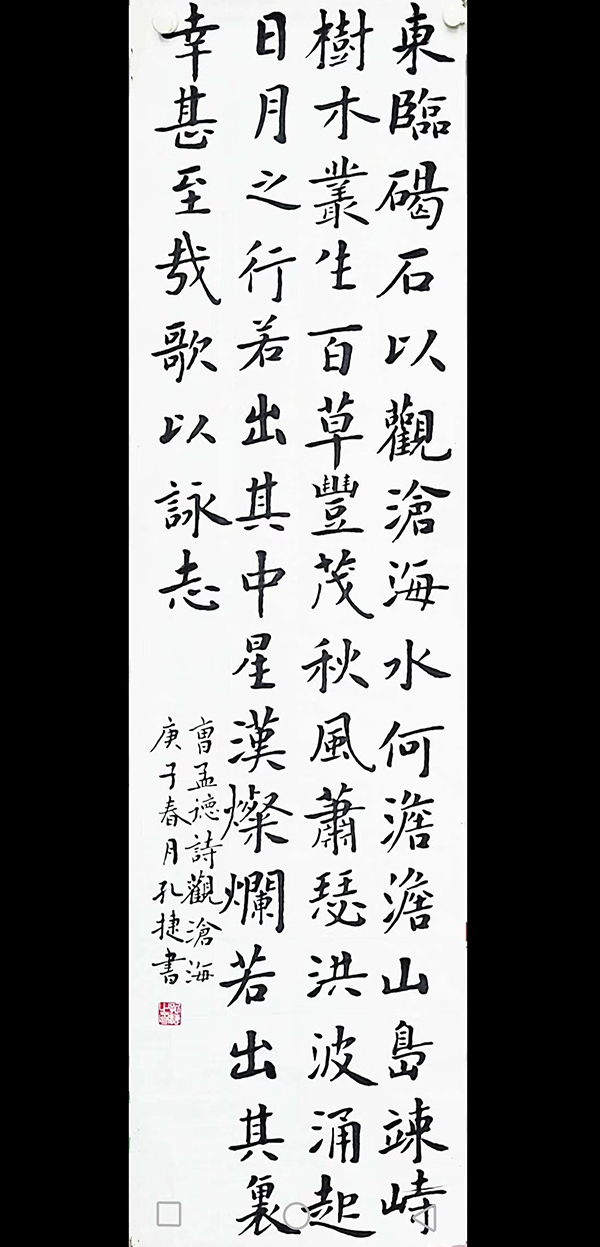 東臨碣石以觀滄海水何澹澹山島竦峙
樹木叢生百草豐茂秋風蕭瑟洪波涌起
日月之行若出其中星漢燦爛若出其裏
幸甚至哉歌以詠志
曹孟德詩觀滄海
庚子春月孔捷書